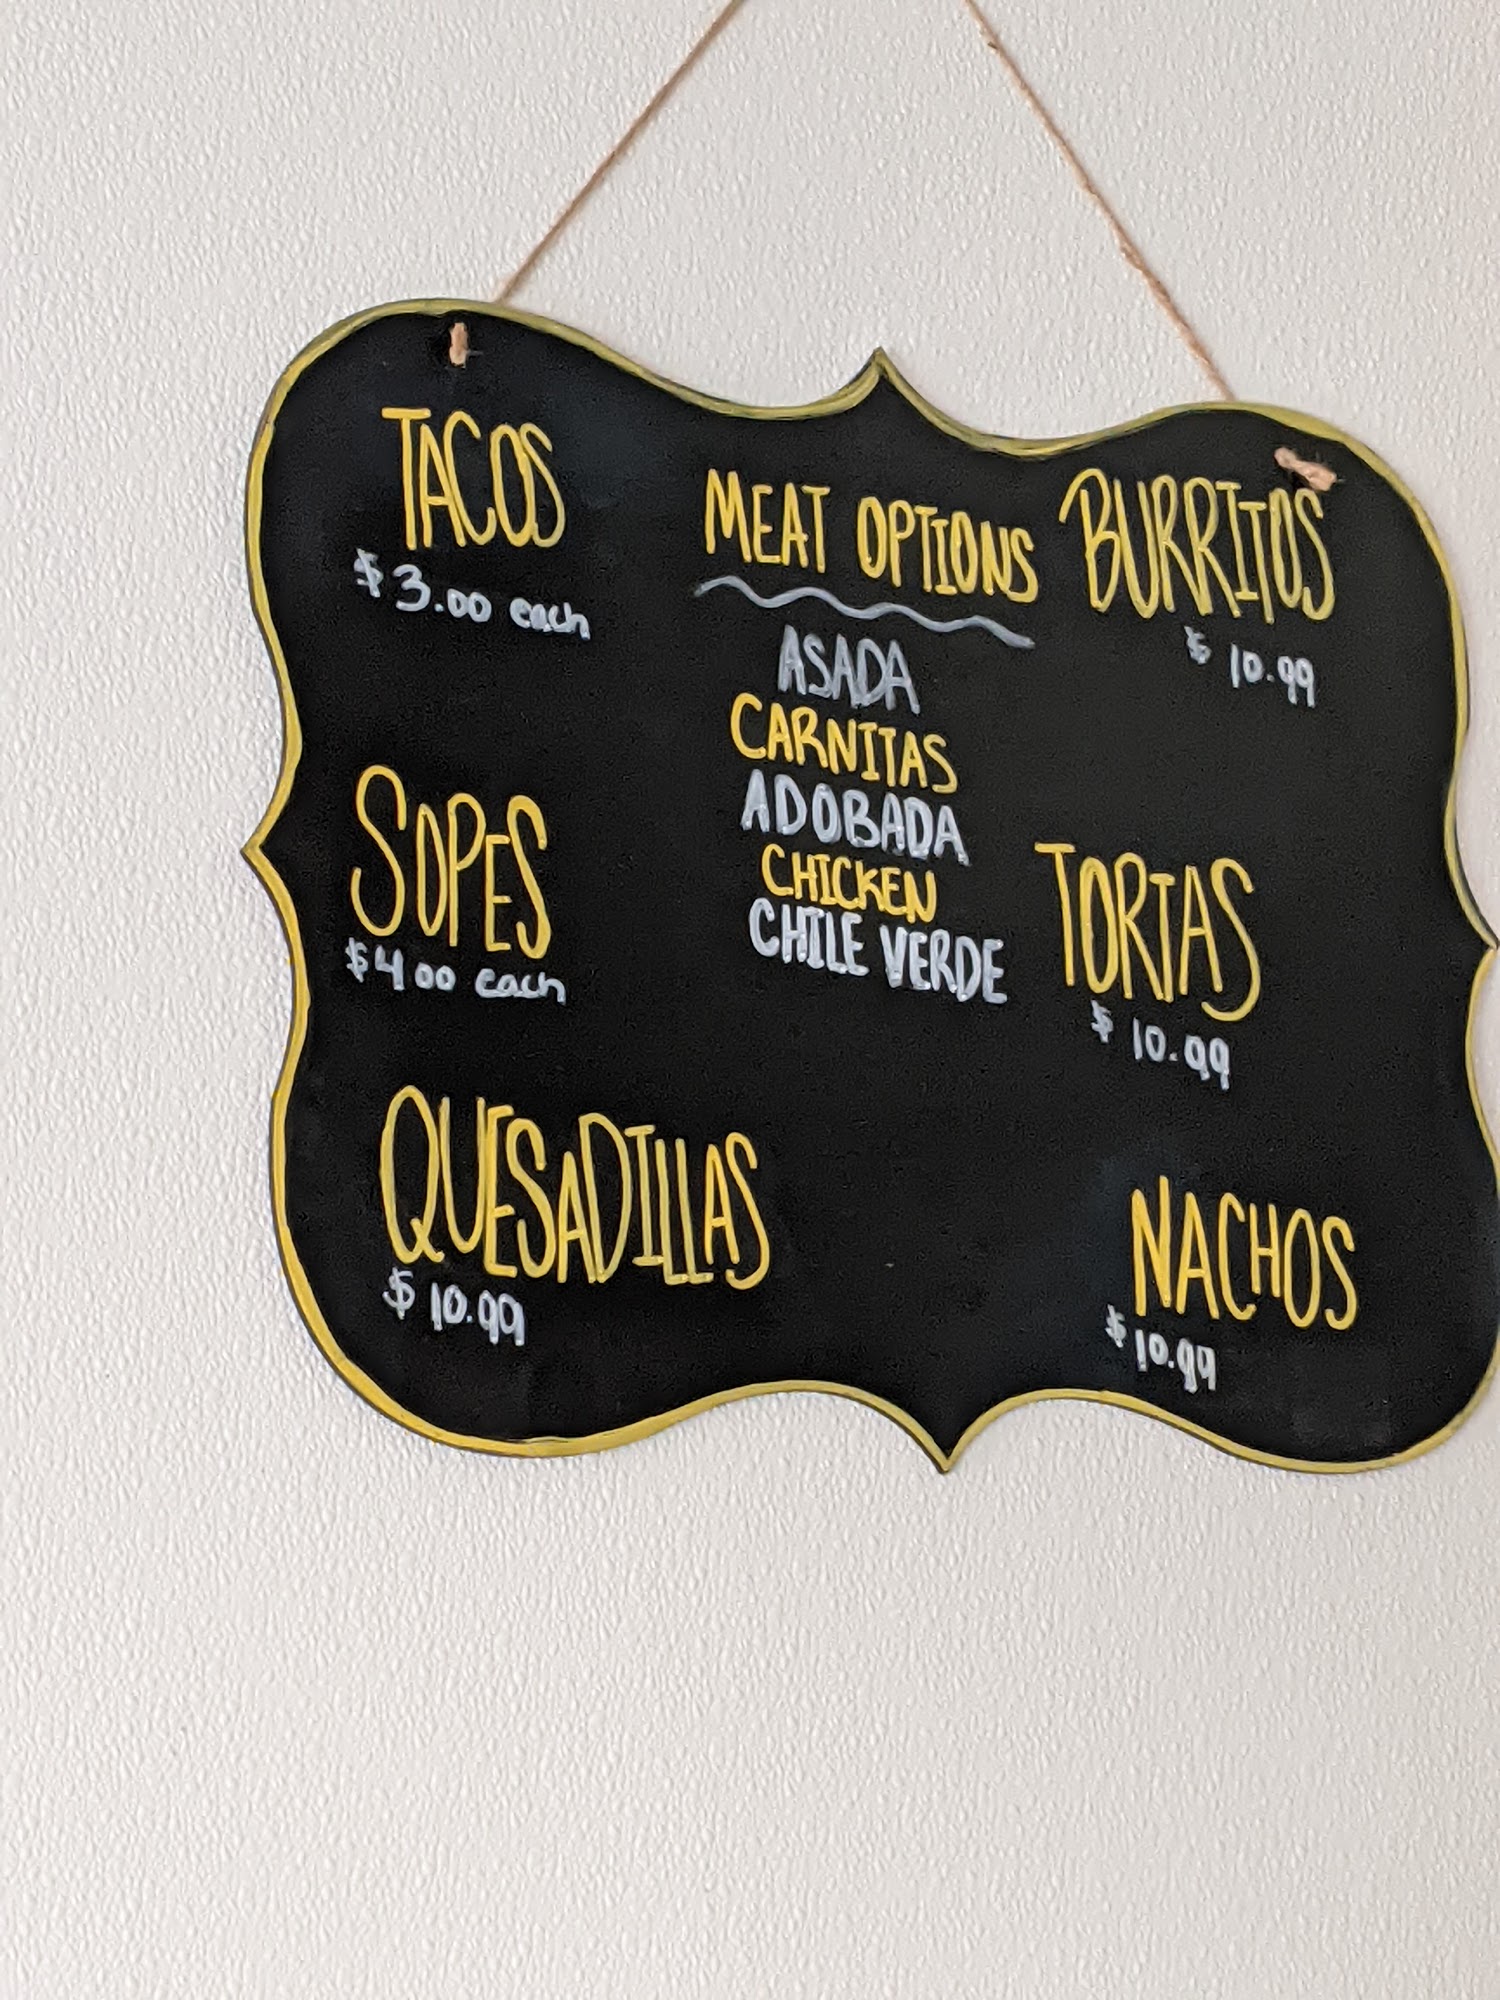 TACOS
$3.00 each
SOPES
$4.00 each
QUESADILLAS
$10.99
MEAT OPTIONS
ASADA
CARNITAS
ADOBADA
CHICKEN
CHILE VERDE
BURRITOS
$ 10.99
TORTAS
$ 10.99
NACHOS
$10.99